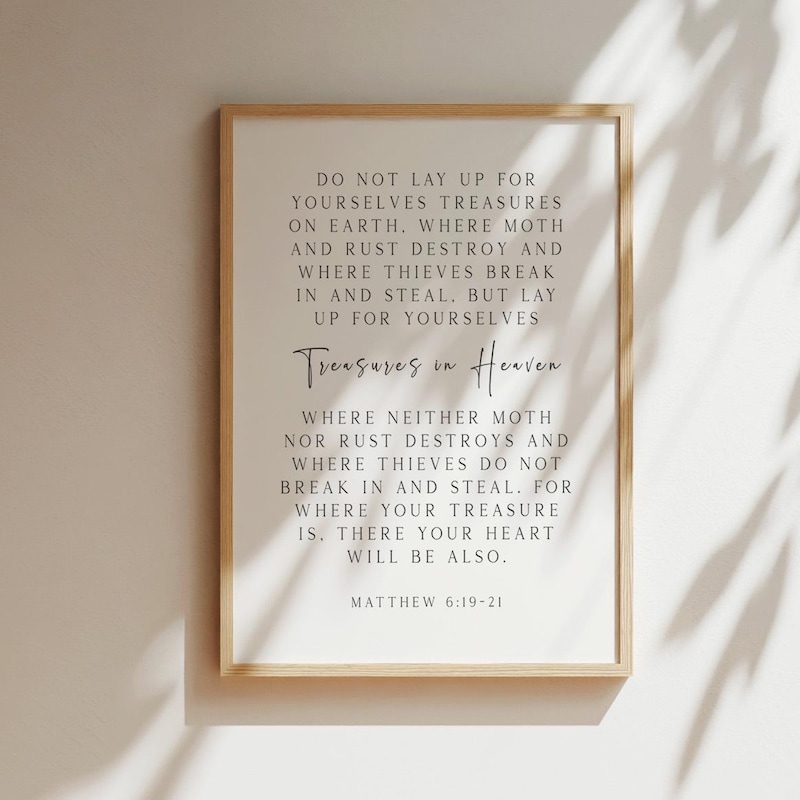 DO NOT LAY UP FOR
YOURSELVES TREASURES
ON EARTH, WHERE MOTH
AND RUST DESTROY AND
WHERE THIEVES BREAK
IN AND STEAL, BUT LAY
UP FOR YOURSELVES
Treasures in Heaven
WHERE NEITHER MOTH
NOR RUST DESTROYS AND
WHERE THIEVES DO NOT
BREAK IN AND STEAL. FOR
WHERE YOUR TREASURE
IS, THERE YOUR HEART
WILL BE ALSO.
MATTHEW 6:19-21